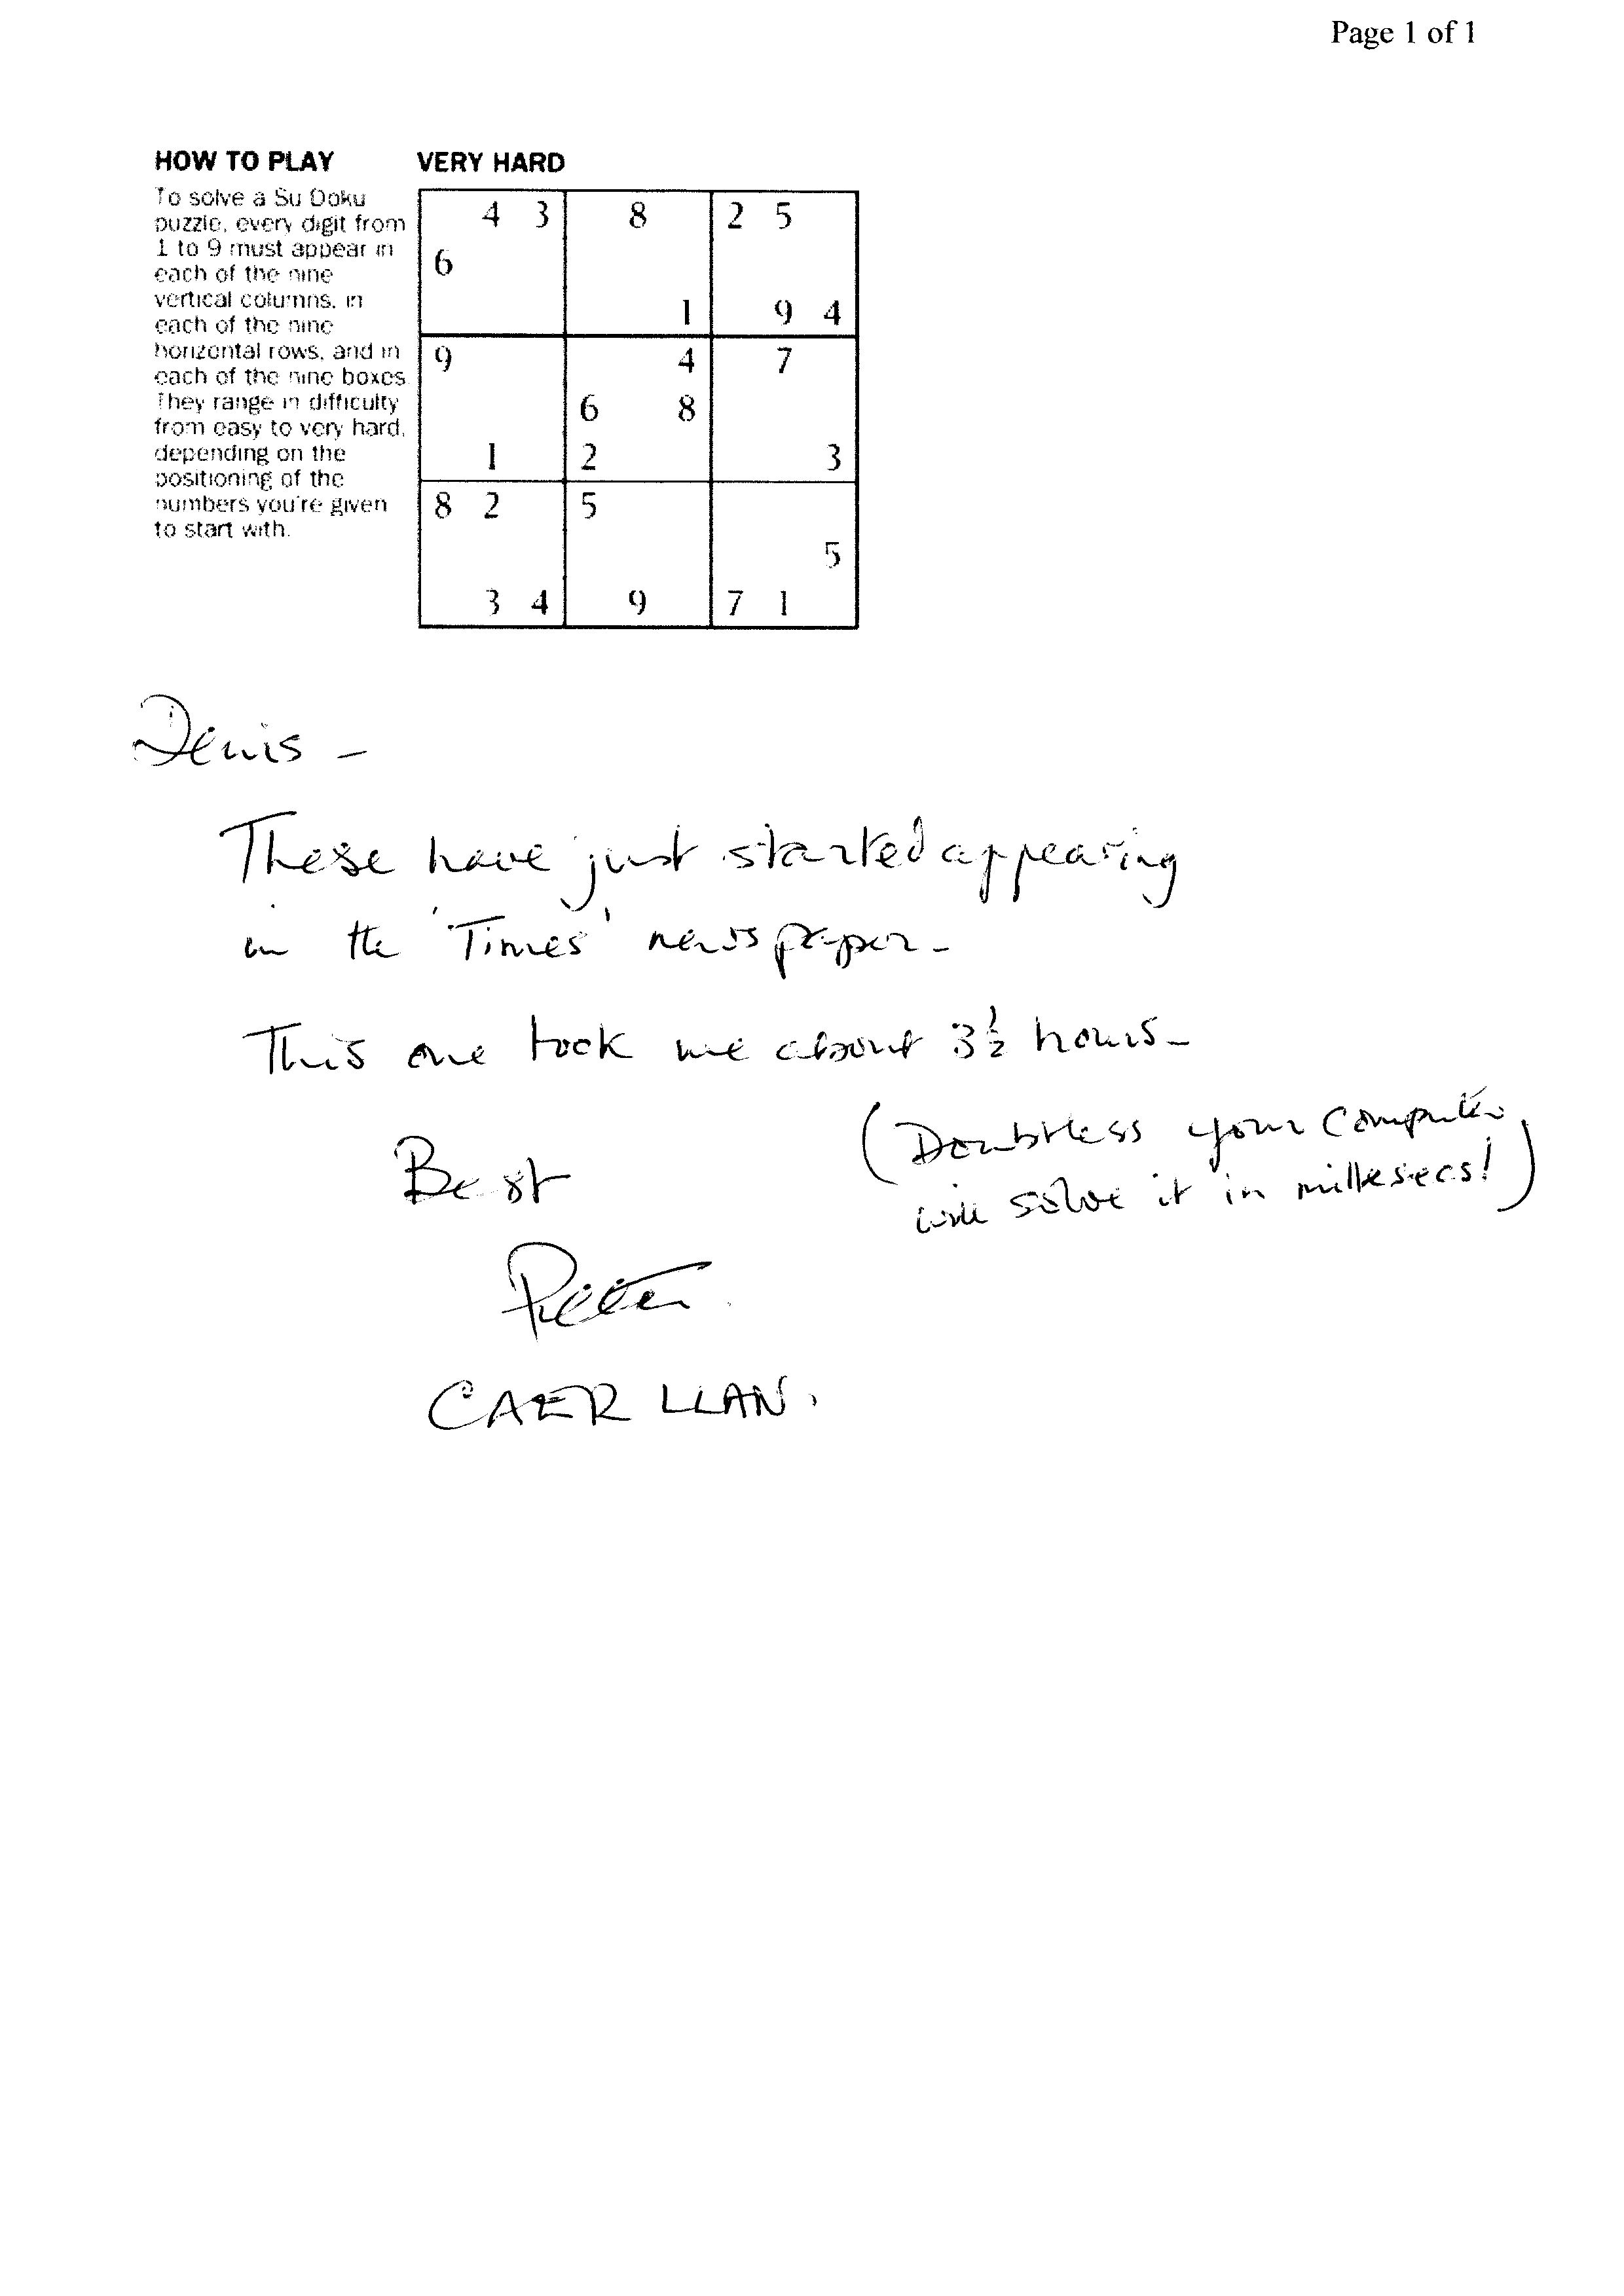 Page 1 of 1
HOW TO PLAY
To solve a Su Doku
puzzle, every digit from
1 to 9 must appear in
each of the nine
vertical columns, in
each of the nine
horizontal rows, and in
each of the nine boxes.
They range in difficulty
from easy to very hard,
depending on the
positioning of the
numbers you're given
to start with.
VERY HARD
4 3 8 2 5
6
1 9 4
9 4 7
6 8
1 2 3
8 2 5
5
3 4 9 7 1
Denis -
These have just started appearing
in the 'Times' newspaper -
This one took me about 3½ hours -
(Doubtless your computer
will solve it in millesecs!)
Best
Peter.
CAER LLAN.